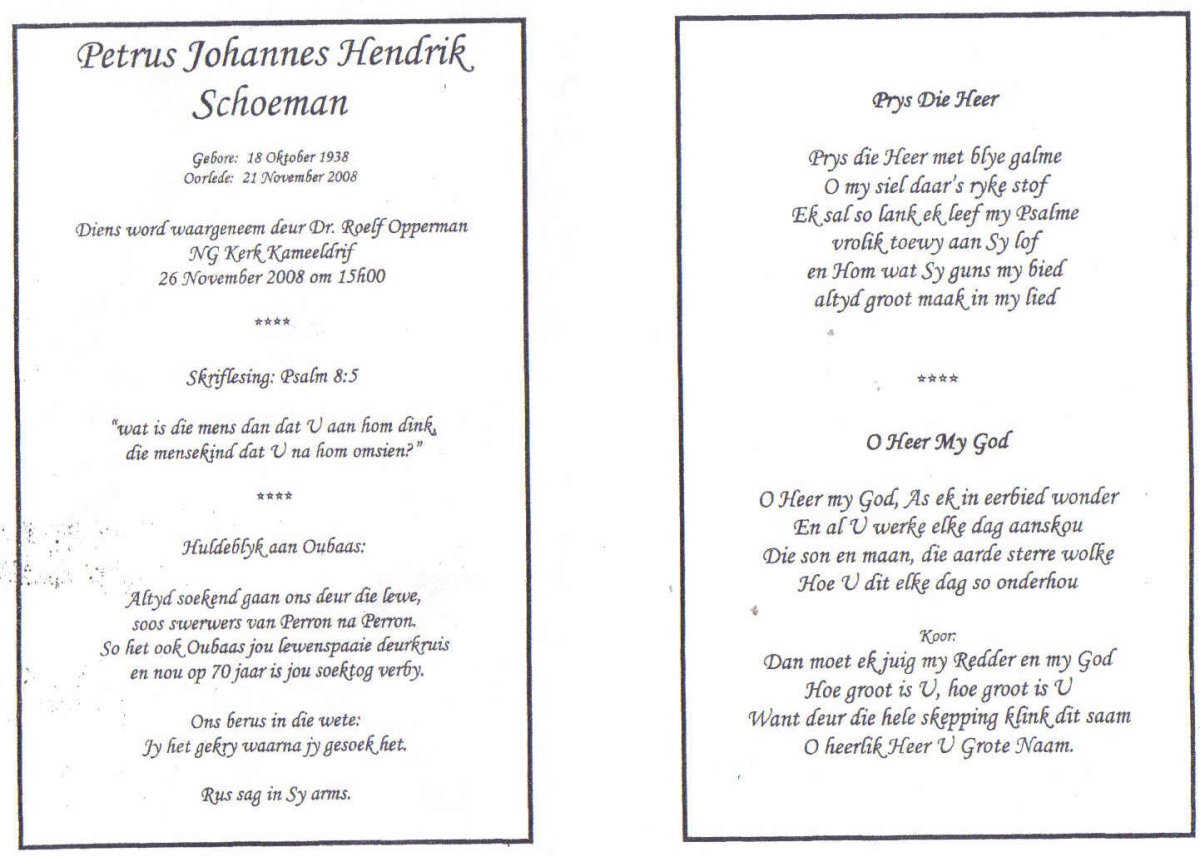 Petrus Johannes Hendrik
Schoeman
Gebore: 18 Oktober 1938
Oorlede: 21 November 2008
Diens word waargeneem deur Dr. Roelf Opperman
NG Kerk Kameeldrif
26 November 2008 om 15h00
****
Skriflesing: Psalm 8:5
"wat is die mens dan dat U aan hom dink,
die mensekind dat U na hom omsien?"
****
Huldeblyk aan Oubaas:
Altyd soekend gaan ons deur die lewe,
soos swerwers van Perron na Perron.
So het ook Oubaas jou lewenspaaie deurkruis
en nou op 70 jaar is jou soektog verby.
Ons berus in die wete:
Jy het gekry waarna jy gesoek het.
Rus sag in Sy arms.
Prys Die Heer
Prys die Heer met blye galme
O my siel daar's ryke stof
Ek sal so lank ek leef my Psalme
vrolik toewy aan Sy lof
en Hom wat Sy guns my bied
altyd groot maak in my lied
****
O Heer My God
O Heer my God, As ek in eerbied wonder
En al U werke elke dag aanskou
Die son en maan, die aarde sterre wolke
Hoe U dit elke dag so onderhou
Koor:
Dan moet ek juig my Redder en my God
Hoe groot is U, hoe groot is U
Want deur die hele skepping klink dit saam
O heerlik Heer U Grote Naam.